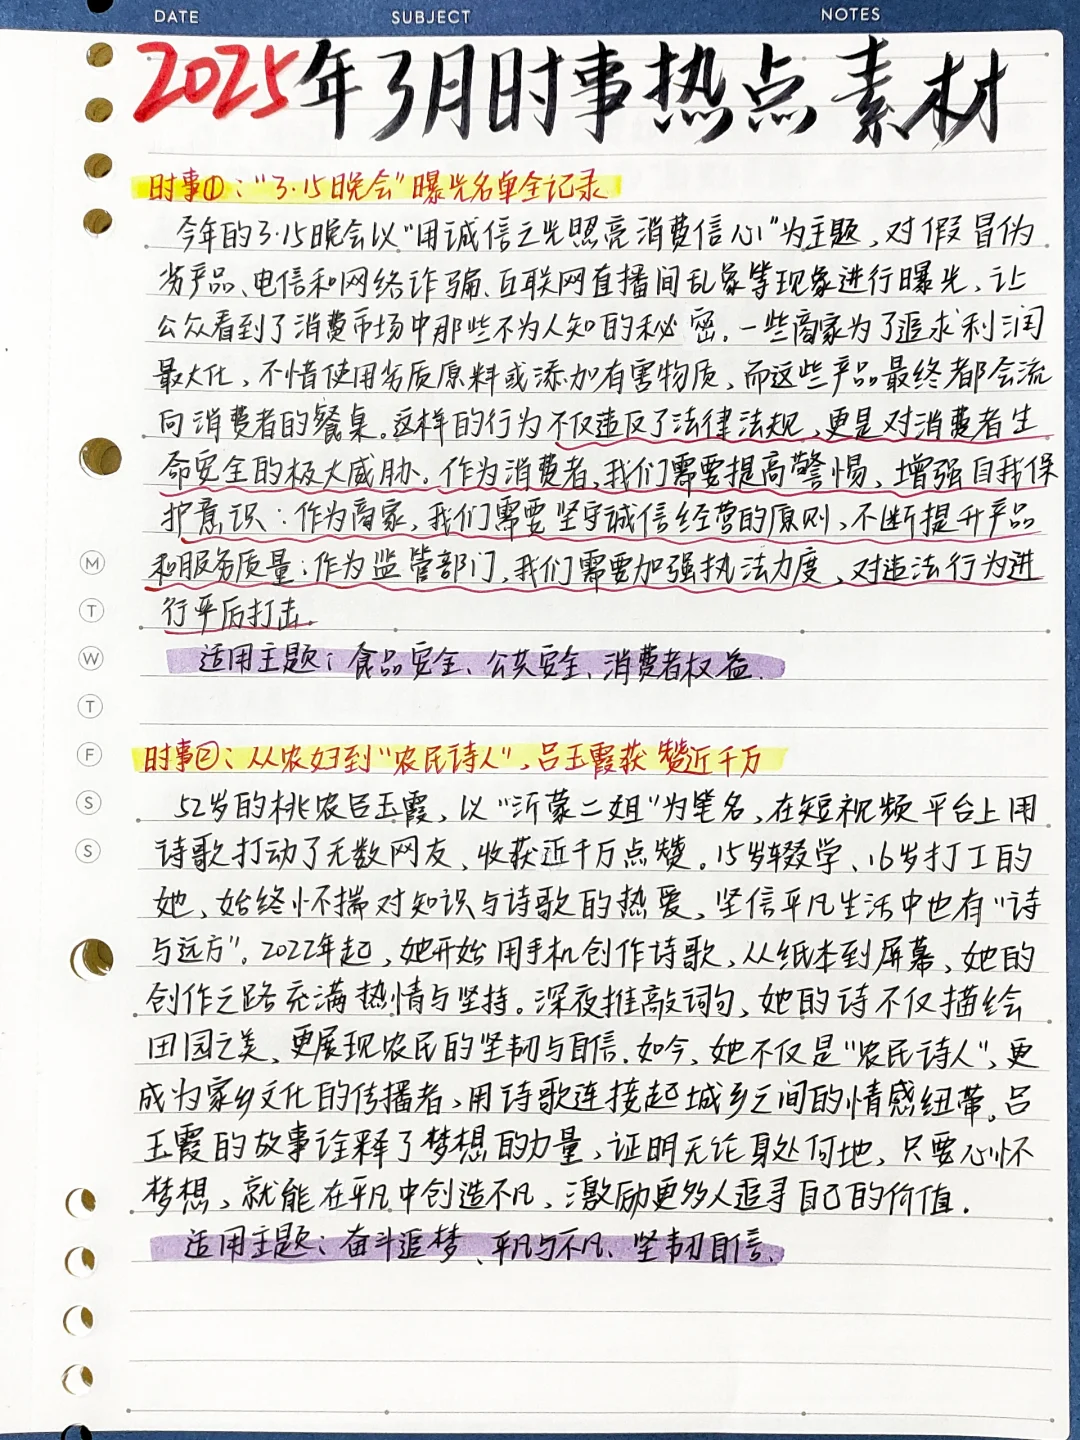 DATE SUBJECT NOTES
2025年3月时事热点素材
时事①:"3·15晚会"曝光名单全记录
今年的3·15晚会以"用诚信之光照亮消费信心"为主题,对假冒伪
劣产品、电信和网络诈骗、互联网直播间乱象等现象进行曝光,让
公众看到了消费市场中那些不为人知的秘密。一些商家为了追求利润
最大化,不惜使用劣质原料或添加有害物质,而这些产品最终都会流
向消费者的餐桌。这样的行为不仅违反了法律法规,更是对消费者生
命安全的极大威胁。作为消费者,我们需要提高警惕,增强自我保
护意识;作为商家,我们需要坚守诚信经营的原则,不断提升产品
和服务质量;作为监管部门,我们需要加强执法力度,对违法行为进
行严厉打击.
适用主题:食品安全、公共安全、消费者权益.
时事②:从农妇到"农民诗人",吕玉霞获赞近千万
52岁的桃农吕玉霞,以"沂蒙二姐"为笔名,在短视频平台上用
诗歌打动了无数网友,收获近千万点赞。15岁辍学、16岁打工的
她,始终怀揣对知识与诗歌的热爱,坚信平凡生活中也有"诗
与远方"。2022年起,她开始用手机创作诗歌,从纸本到屏幕,她的
创作之路充满热情与坚持。深夜推敲词句,她的诗不仅描绘
田园之美,更展现农民的坚韧与自信.如今,她不仅是"农民诗人",更
成为家乡文化的传播者,用诗歌连接起城乡之间的情感纽带。吕
玉霞的故事诠释了梦想的力量,证明无论身处何地,只要心怀
梦想,就能在平凡中创造不凡,激励更多人追寻自己的价值.
适用主题:奋斗追梦、平凡与不凡、坚韧自信.
M
T
W
T
F
S
S